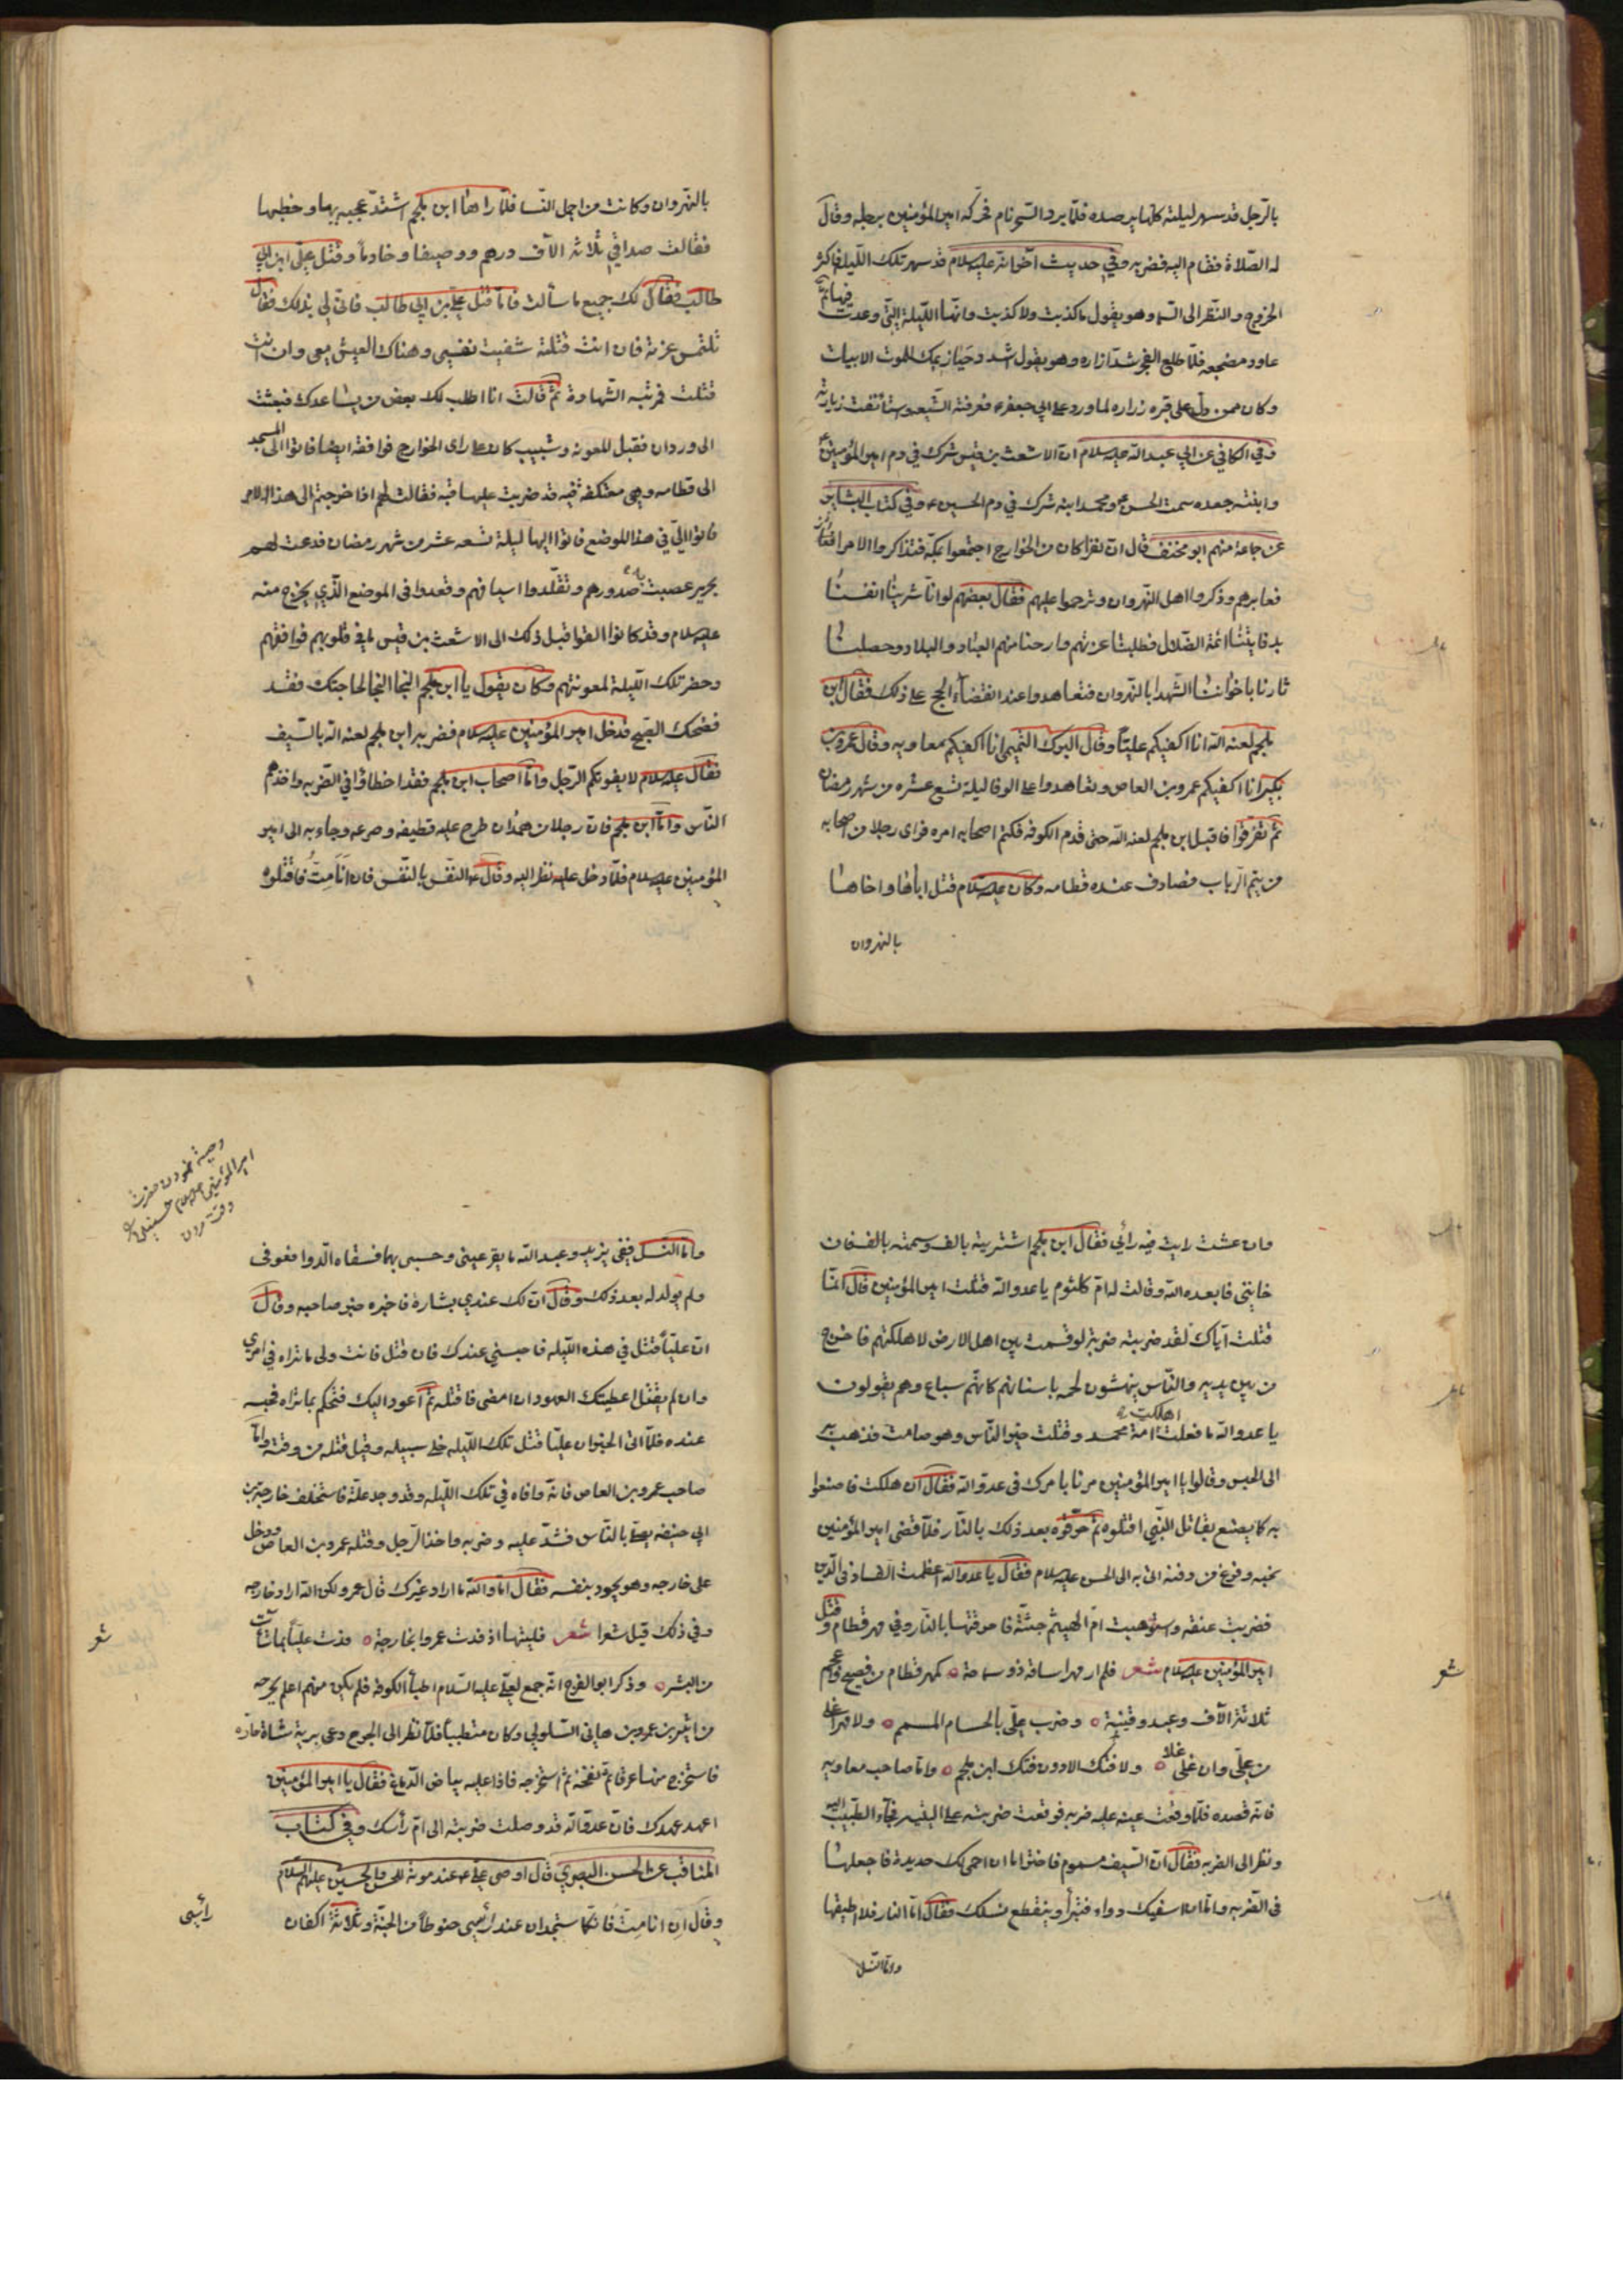 بالرجل قد سهر ليلته كلها يرصده فلما برد السحر نام فحركه امير المؤمنين برجله وقال
له الصلاة فقام اليه فضربه وفي حديث اخوانه عليه السلام قد سهر تلك الليلة فاكثر
الخروج والنظر الى السما وهو يقول ما كذبت ولا كذبت وانها الليلة التي وعدت فيها ثم
عاود مضجعه فلما طلع الفجر شد ازاره وهو يقول اشدد حيازيمك للموت الابيات
وكان ممن دل على قبره زراره لما ورد على ابي جعفر ع فعرفته الشيعه واستانفت زيارته
وفي الكافي عن ابي عبد الله عليه السلام ان الاشعث بن قيس شرك في دم امير المؤمنين ع
وابنته جعده سمت الحسن ع ومحمد ابنه شرك في دم الحسين ع وفي كتاب
عن جماعة منهم ابو مخنف قال ان نفرا كان من الخوارج اجتمعوا بمكة فتذاكروا الامرا
وذكروا اهل النهروان وترحموا عليهم فقال بعضهم لو انا شرينا انفسنا
ائمة الضلال فطلبنا غرتهم وارحنا منهم العباد والبلاد وحصلنا
ثارنا باخواننا الشهدا بالنهروان فتعاهدوا عند انقضاء الحج على ذلك فقال ابن
ملجم لعنه الله انا اكفيكم عليا وقال البرك التميمي انا اكفيكم معاويه وقال عمرو بن
بكير انا اكفيكم عمرو بن العاص وتعاهدوا على الوفا ليلة تسع عشره من شهر رمضان
ثم تفرقوا فاقبل ابن ملجم لعنه الله حتى قدم الكوفه فكتم اصحابه امره فراى رجلا من اصحابه
من تيم الرباب فصادف عنده قطامه وكان عليه السلام قتل اباها واخاها
بالنهروان
بالنهروان وكانت من اجمل النسا فلما راها ابن ملجم اشتد عجبه بها وخطبها
فقالت صداقي ثلاثة الاف درهم ووصيفا وخادما وقتل على ابن ابي
طالب فقال لك جميع ما سألت فاما قتل علي بن ابي طالب فانى لي بذلك فقالت
تلتمس غرته فان انت قتلته شفيت نفسي وهناك العيش معي وان انت
قتلت فمرتبه الشهادة ثم قالت انا اطلب لك بعض من يساعدك فبعثت
الى وردان فقبل للعونه وشبيب كان على راى الخوارج فوافقه ايضا فاتوا الى المسجد
الى قطامه وهي معتكفة فيه قد ضربت عليها قبه فقالت لهم اذا خرجتم الى هذا الامر
فاتوا الي في هذا الموضع فاتوا اليها ليلة تسعه عشر من شهر رمضان فدعت لهم
بحرير عصبت به صدورهم وتقلدوا اسيافهم وقعدوا في الموضع الذي يخرج منه
عليه السلام وقد كانوا القوا قبل ذلك الى الاشعث بن قيس ما في قلوبهم فوافقهم
وحضر تلك الليلة لمعونتهم وكان يقول يا ابن ملجم النجا النجا لحاجتك فقد
فضحك الصبح فدخل امير المؤمنين عليه السلام فضربه ابن ملجم لعنه الله بالسيف
فقال عليه السلام لا يفوتكم الرجل واما اصحاب ابن ملجم فقد اخطاؤا في الضربه واخذهم
الناس واما ابن ملجم فان رجلا من همدان طرح عليه قطيفه وصرعه وجاء به الى امير
المؤمنين عليه السلام فلما دخل عليه نظر اليه وقال ع النفس بالنفس فان انا مت فاقتلوه
وان عشت رايت فيه رأيي فقال ابن ملجم اشتريته بالف وسمته بالف فان
خانني فابعده الله وقالت له ام كلثوم يا عدو الله قتلت امير المؤمنين قال انما
قتلت اباك لقد ضربته ضربة لو قسمت بين اهل الارض لاهلكتهم فاخرج
من بين يديه والناس ينهشون لحمه باسنانهم كانهم سباع وهم يقولون
يا عدو الله ما فعلت اهلكت امة محمد وقتلت خير الناس وهو صامت فذهب به
الى الحبس وقالوا يا امير المؤمنين مرنا بامرك في عدو الله فقال ان هلكت فاصنعوا
به كما يصنع بقاتل النبي اقتلوه ثم حرقوه بعد ذلك بالنار فلما قضى امير المؤمنين
نحبه وفرغ من دفنه اتى به الى الحسن عليه السلام فقال يا عدو الله اعظمت الفساد في الدين
فضربت عنقه واستوهبت ام الهيثم جثته فاحرقتها بالنار وفي مهر قطام وقتل
امير المؤمنين عليه السلام شعر فلم ار مهرا ساقه ذو سماحة كمهر قطام من فصيح واعجم
شعر
ثلاثة الاف وعبد وقينة وضرب علي بالحسام المسمم ولا مهر اغلى
من علي وان غلى غلا ولا فتك الا دون فتك ابن ملجم واما صاحب معاويه
فانه قصده فلما وقعت عينه عليه ضربه فوقعت ضربته على اليته فجاء الطبيب اليه
ونظر الى الضربه فقال ان السيف مسموم فاختر اما ان احمي لك حديدة فاجعلها
في الضربه واما ان اسقيك دواء فتبرأ وينقطع نسلك فقال اما النار فلا اطيقها
واما النسل
وصية نمودن حضرت
امير المؤمنين عليه السلام
وقت مردن
واما النسل ففي يزيد وعبد الله ما يقر عيني وحسبي بهما فسقاه الدوا فعوفى
ولم يولد له بعد ذلك وقال ان لك عندي بشارة فاخبره خبر صاحبه وقال
ان عليا قتل في هذه الليله فاحبسني عندك فان قتل فانت ولى ما تراه في امري
وان لم يقتل اعطيتك العهود ان امضى فاقتله ثم اعود اليك فتحكم بما تراه فحبسه
عنده فلما اتى الخبر ان عليا قتل تلك الليله خلى سبيله وقيل قتله من وقته واما
صاحب عمرو بن العاص فانه وافاه في تلك الليله وقد وجد علة فاستخلف خارجة بن
ابي حنيفه يصلي بالناس فشد عليه وضربه فاخذ الرجل وقتله عمرو بن العاص ودخل
على خارجه وهو يجود بنفسه فقال اما والله ما اراد غيرك قال عمرو لكن الله اراد خارجه
وفي ذلك قيل شعرا شعر فليتها اذ فدت عمروا بخارجة فدت عليا بما شاءت
شعر
من البشر وذكر ابو الفرج انه جمع لعلي عليه السلام اطباء الكوفه فلم يكن منهم اعلم بجرحه
من اثير بن عمرو بن هانى السلولي وكان متطببا فلما نظر الى الجرح دعى بريه شاة حاره
فاستخرج منها عرقا ثم نفخه ثم استخرجه فاذا عليه بياض الدماغ فقال يا امير المؤمنين
اعهد عهدك فان عدو الله قد وصلت ضربته الى ام رأسك وفي كتاب
المناقب عن الحسن البصري قال اوصى علي ع عند موته للحسن والحسين عليهم السلام
وقال ان انا مت فانكما ستجدان عند رأسي حنوطا من الجنة وثلاثة اكفان
رأسي